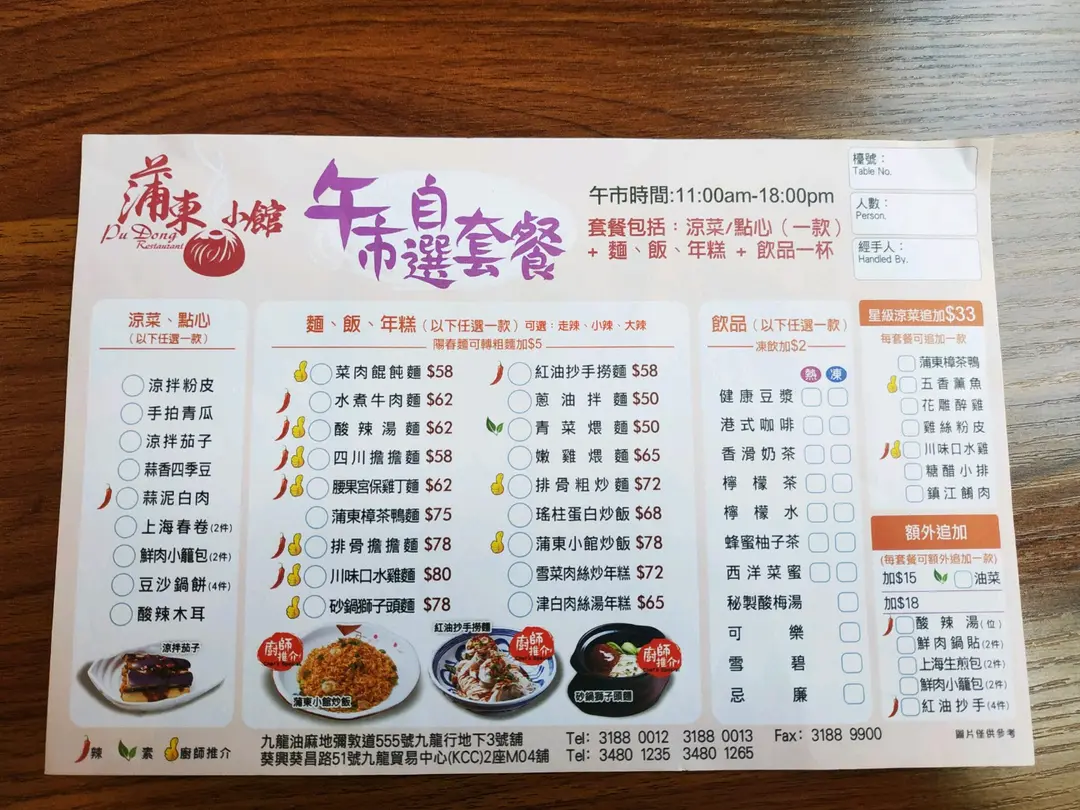 蒲東小館
Pu Dong
Restaurant
午市自選套餐
午市時間:11:00am-18:00pm
套餐包括：涼菜/點心（一款）
+ 麵、飯、年糕 + 飲品一杯
檯號：
Table No.
人數：
Person.
經手人：
Handled By.
涼菜、點心
（以下任選一款）
涼拌粉皮
手拍青瓜
涼拌茄子
蒜香四季豆
蒜泥白肉
上海春卷(2件)
鮮肉小籠包(2件)
豆沙鍋餅(4件)
酸辣木耳
涼拌茄子
麵、飯、年糕（以下任選一款）可選：走辣、小辣、大辣
陽春麵可轉粗麵加$5
菜肉餛飩麵 $58
水煮牛肉麵 $62
酸辣湯麵 $62
四川擔擔麵 $58
腰果宮保雞丁麵 $62
蒲東樟茶鴨麵 $75
排骨擔擔麵 $78
川味口水雞麵 $80
砂鍋獅子頭麵 $78
紅油抄手撈麵 $58
蔥油拌麵 $50
青菜煨麵 $50
嫩雞煨麵 $65
排骨粗炒麵 $72
瑤柱蛋白炒飯 $68
蒲東小館炒飯 $78
雪菜肉絲炒年糕 $72
津白肉絲湯年糕 $65
廚師推介!
蒲東小館炒飯
紅油抄手撈麵
廚師推介!
砂鍋獅子頭麵
廚師推介!
飲品（以下任選一款）
凍飲加$2
熱 凍
健康豆漿
港式咖啡
香滑奶茶
檸檬茶
檸檬水
蜂蜜柚子茶
西洋菜蜜
秘製酸梅湯
可樂
雪碧
忌廉
星級涼菜追加$33
每套餐可追加一款
蒲東樟茶鴨
五香薰魚
花雕醉雞
雞絲粉皮
川味口水雞
糖醋小排
鎮江餚肉
額外追加
(每套餐可額外追加一款)
加$15 油菜
加$18
酸辣湯(位)
鮮肉鍋貼(2件)
上海生煎包(2件)
鮮肉小籠包(2件)
紅油抄手(4件)
辣 素 廚師推介
九龍油麻地彌敦道555號九龍行地下3號舖 Tel: 3188 0012 3188 0013 Fax: 3188 9900
葵興葵昌路51號九龍貿易中心(KCC)2座M04舖 Tel: 3480 1235 3480 1265
圖片僅供參考